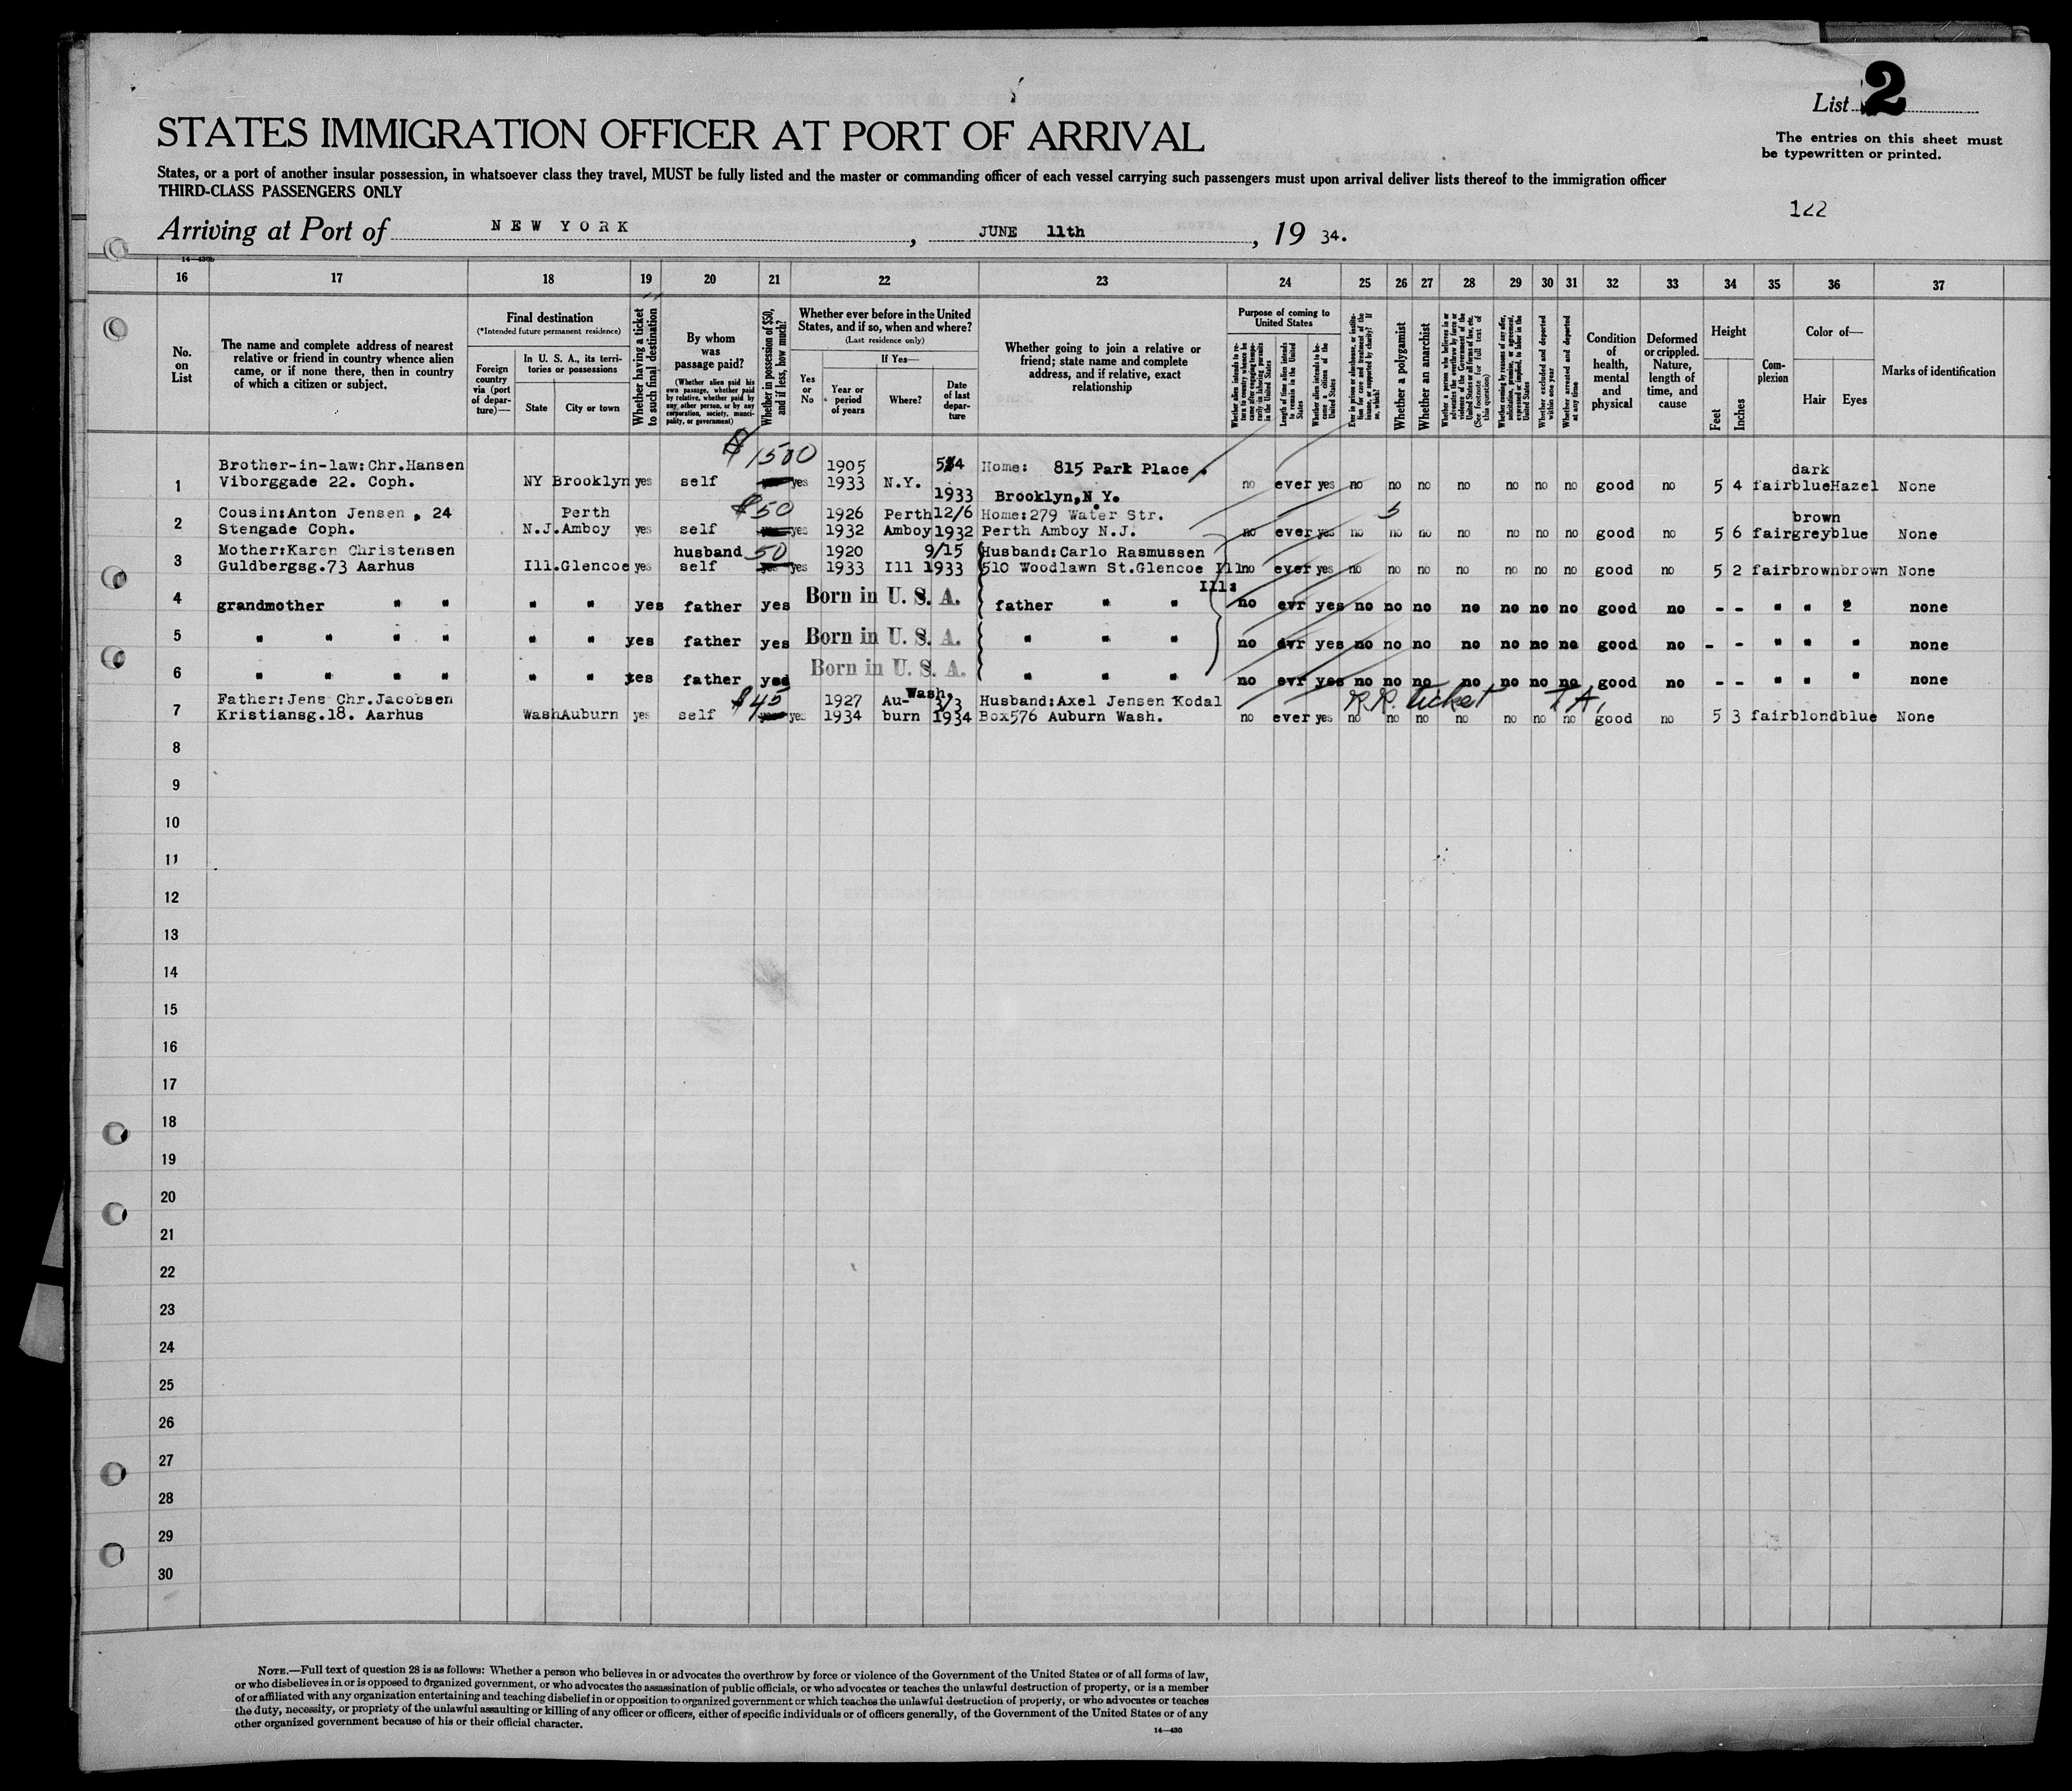 List 2
The entries on this sheet must
be typewritten or printed.
STATES IMMIGRATION OFFICER AT PORT OF ARRIVAL
States, or a port of another insular possession, in whatsoever class they travel, MUST be fully listed and the master or commanding officer of each vessel carrying such passengers must upon arrival deliver lists thereof to the immigration officer
THIRD-CLASS PASSENGERS ONLY
122
Arriving at Port of NEW YORK, JUNE 11th, 19 34.
14—430b
16 17 18 19 20 21 22 23 24 25 26 27 28 29 30 31 32 33 34 35 36 37
No. on List
The name and complete address of nearest relative or friend in country whence alien came, or if none there, then in country of which a citizen or subject.
Final destination
(*Intended future permanent residence)
Foreign country via (port of departure)—
In U. S. A., its territories or possessions
State
City or town
Whether having a ticket to such final destination
By whom was passage paid?
(Whether alien paid his own passage, whether paid by relative, whether paid by any other person, or by any corporation, society, municipality, or government)
Whether in possession of $50, and if less, how much?
Whether ever before in the United States, and if so, when and where?
(Last residence only)
Yes or No
If Yes—
Year or period of years
Where?
Date of last departure
Whether going to join a relative or friend; state name and complete address, and if relative, exact relationship
Purpose of coming to United States
Whether alien intends to return to country whence he came after engaging temporarily in laboring pursuits in the United States
Length of time alien intends to remain in the United States
Whether alien intends to become a citizen of the United States
Ever in prison or almshouse, or institution for care and treatment of the insane, or supported by charity? If so, which?
Whether a polygamist
Whether an anarchist
Whether a person who believes in or advocates the overthrow by force or violence of the Government of the United States or all forms of law, etc. (See footnote for full text of this question)
Whether coming by reason of any offer, solicitation, promise, or agreement, expressed or implied, to labor in the United States
Whether excluded and deported within one year
Whether arrested and deported at any time
Condition of health, mental and physical
Deformed or crippled. Nature, length of time, and cause
Height
Feet
Inches
Complexion
Color of—
Hair
Eyes
Marks of identification
$1500
Brother-in-law:Chr.Hansen 1905 Home: 815 Park Place dark
1 Viborggade 22. Coph. NY Brooklyn yes self yes 1933 N.Y. 1933 Brooklyn,N Y. no ever yes no no no no no no no good no 5 4 fair blue Hazel None
$50
Cousin:Anton Jensen, 24 Perth 1926 Perth 12/6 Home:279 Water Str. brown
2 Stengade Coph. N.J. Amboy yes self yes 1932 Amboy 1932 Perth Amboy N.J. no ever yes no no no no no no no good no 5 6 fair grey blue None
Mother:Karen Christensen husband 50 1920 9/15 Husband:Carlo Rasmussen
3 Guldbergsg.73 Aarhus Ill. Glencoe yes self yes yes 1933 Ill 1933 510 Woodlawn St.Glencoe Ill no ever yes no no no no no no no good no 5 2 fair brown brown None
Ill:
4 grandmother " " " " yes father yes Born in U. S. A. father " " no evr yes no no no no no no no good no - - " " none
5 " " " " " " yes father yes Born in U. S. A. " " " no evr yes no no no no no no no good no - - " " " none
6 " " " " " " yes father yes Born in U. S. A. " " " no evr yes no no no no no no no good no - - " " " none
Father:Jens Chr.Jacobsen $45 1927 Au- Wash. 3/3 Husband:Axel Jensen Kodal R.R. ticket T A,
7 Kristiansg.18. Aarhus Wash Auburn yes self yes 1934 burn 1934 Box576 Auburn Wash. no ever yes no no no no no no no good no 5 3 fair blond blue None
8
9
10
11
12
13
14
15
16
17
18
19
20
21
22
23
24
25
26
27
28
29
30
NOTE.—Full text of question 28 is as follows: Whether a person who believes in or advocates the overthrow by force or violence of the Government of the United States or of all forms of law,
or who disbelieves in or is opposed to organized government, or who advocates the assassination of public officials, or who advocates or teaches the unlawful destruction of property, or is a member
of or affiliated with any organization entertaining and teaching disbelief in or opposition to organized government or which teaches the unlawful destruction of property, or who advocates or teaches
the duty, necessity, or propriety of the unlawful assaulting or killing of any officer or officers, either of specific individuals or of officers generally, of the Government of the United States or of any
other organized government because of his or their official character.
14—430